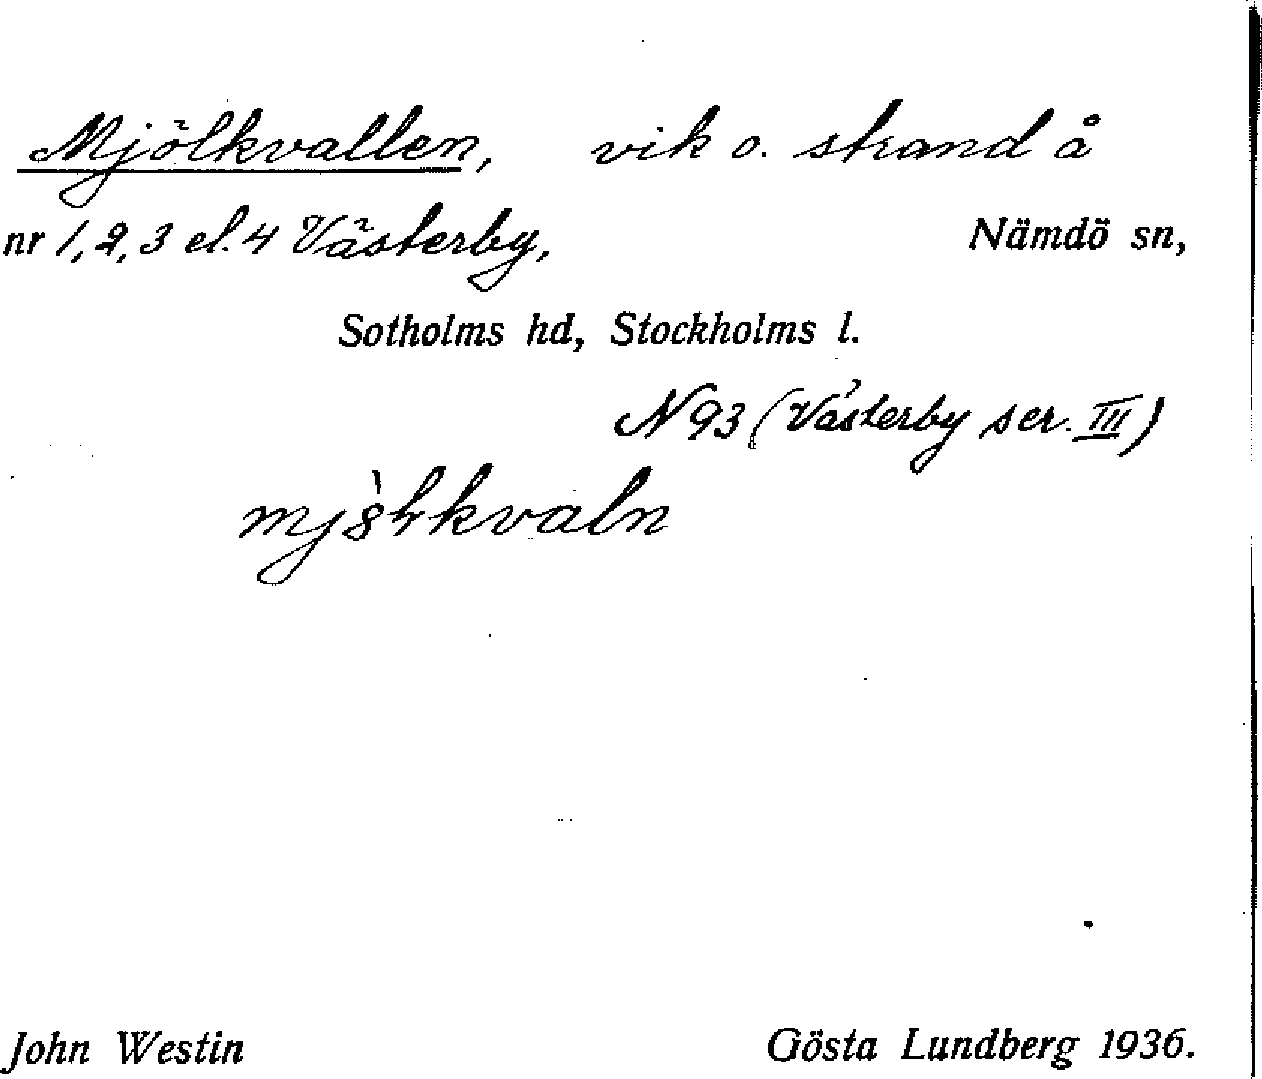 Mjölkvallen, vik o. strand å
nr 1, 2, 3 el. 4 Västerby, Nämdö sn,
Sotholms hd, Stockholms l.
N 93 (Västerby ser. III)
John Westin Gösta Lundberg 1936.